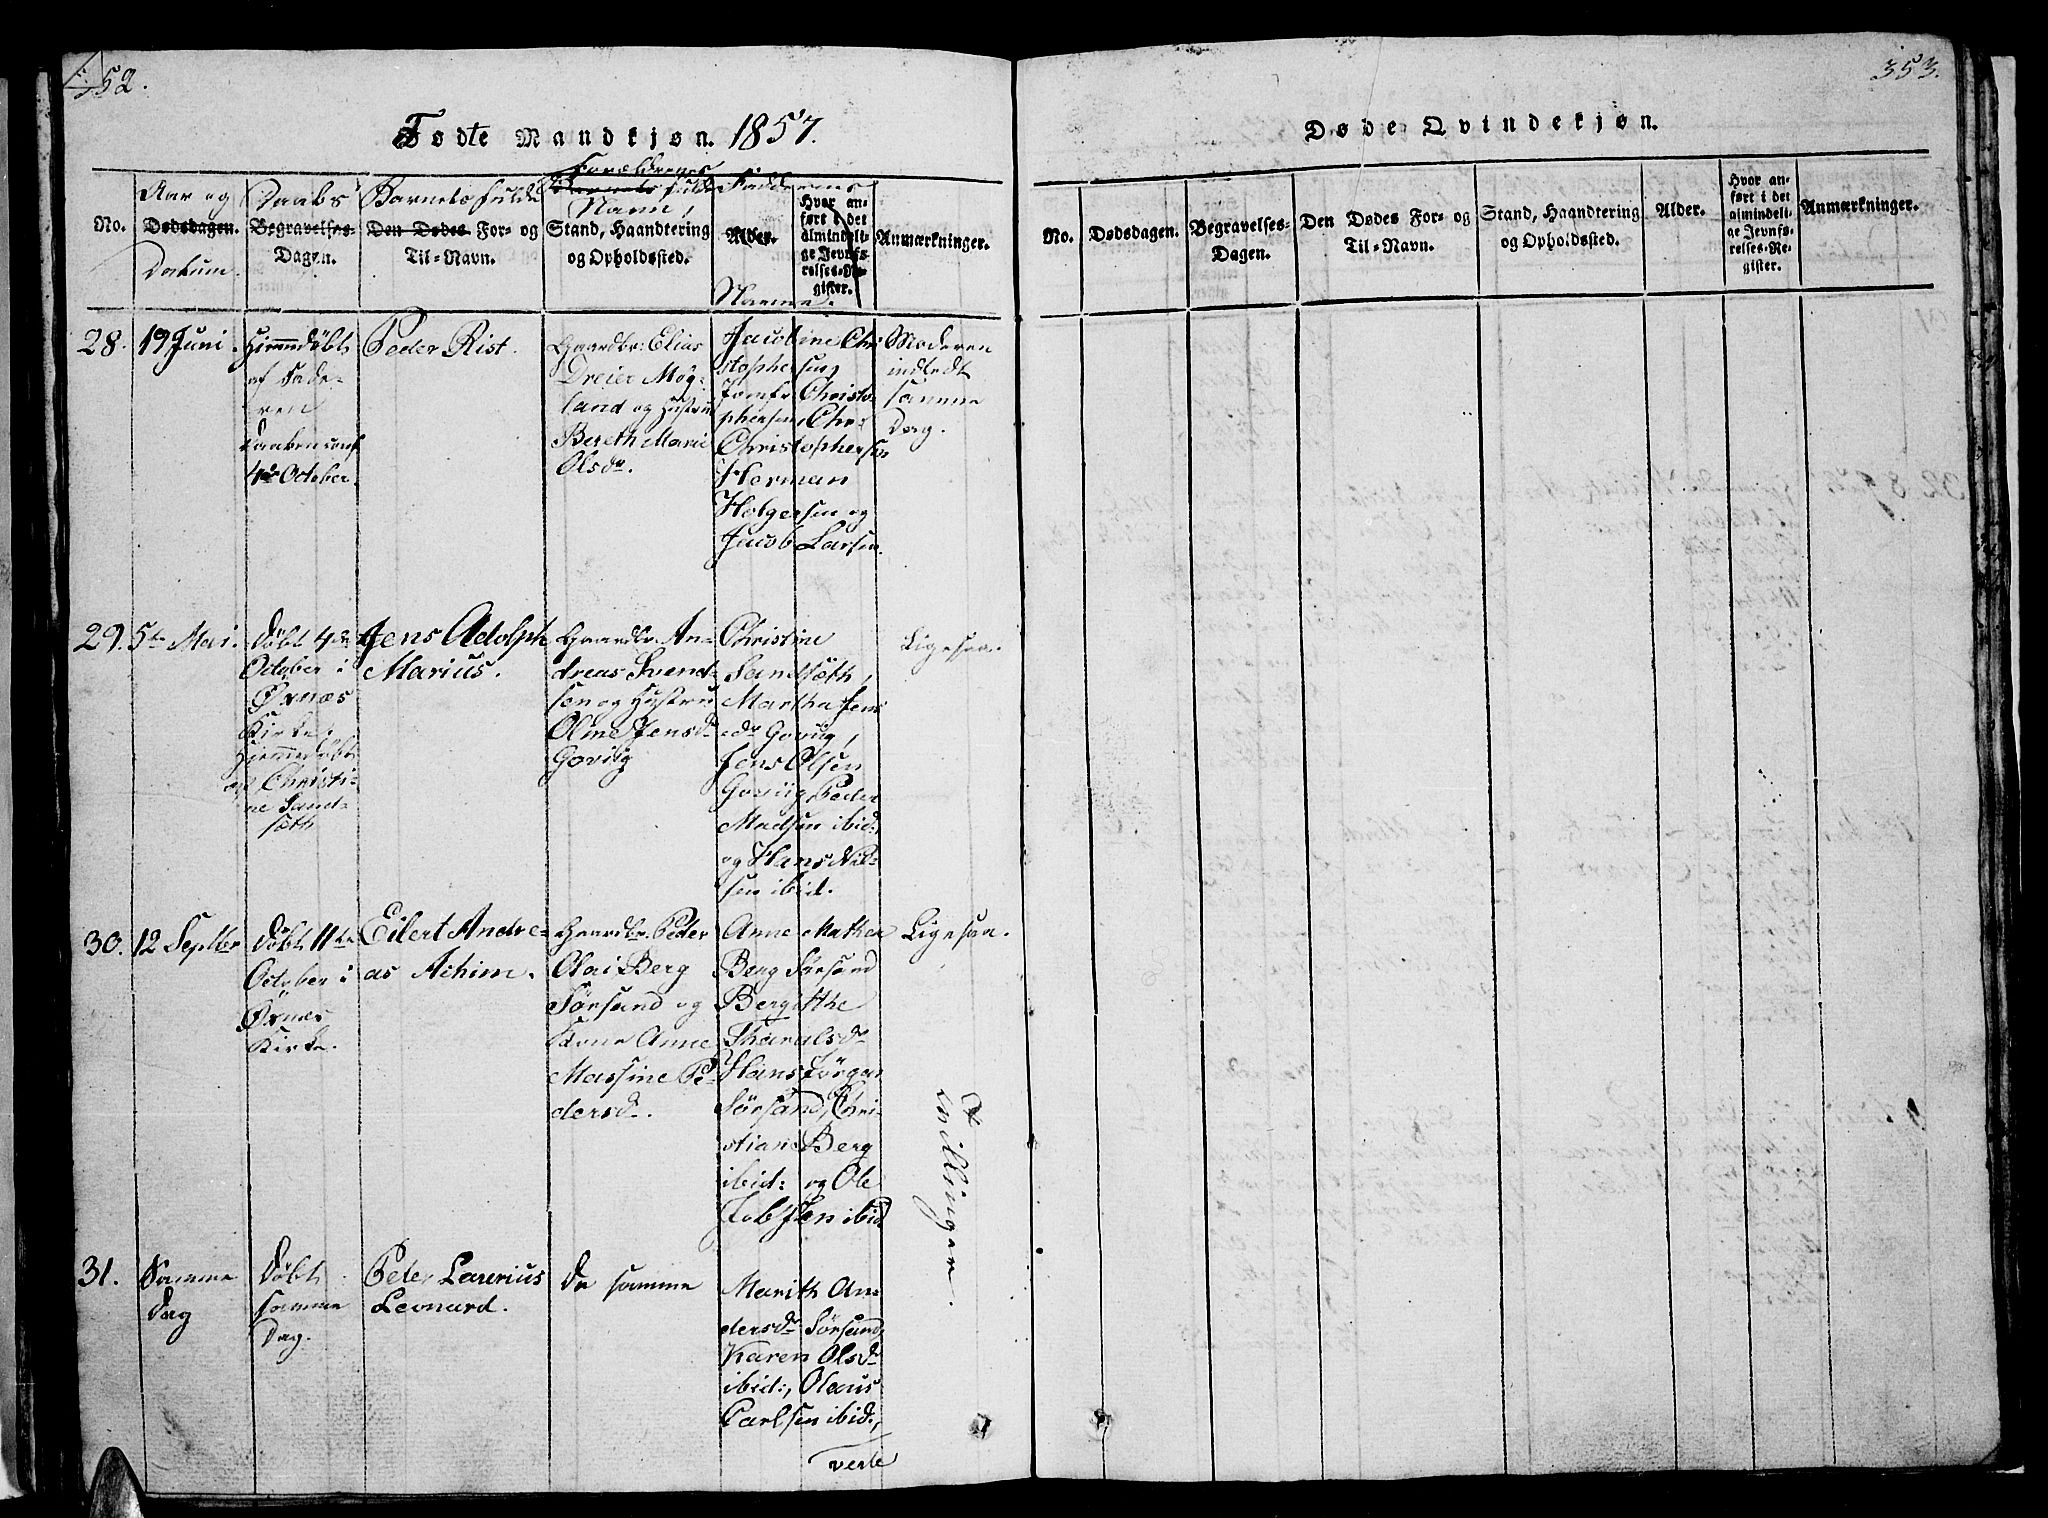 352.
Fødte Mandkjøn. 1857.
No.
Aar og
Dødsdagen.
Datum.
Daabs
Begravelses-
Dagen.
Barnets fulde
Den Dødes For- og
Til-Navn.
Forældrenes
Barnets fulde
Navn,
Stand, Haandtering
og Opholdssted.
Faddernes
Alder.
Navne.
Hvor an-
ført i det
almindeli-
ge Jevnfø-
relses-Re-
gister.
Anmærkninger.
28.
19 Juni.
Hjemmedøbt
af Fade-
ren
4de October.
Peder Rist.
Gaardbr: Elias
Dreier Møg-
land og Hustru
Bereth Marie
Olsdr.
Jacobine Chri
stophersen,
Jomfr Christo-
phersen, Chr:
Christophersen
Herman
Holgersen og
Jacob Larsen.
Moderen
indledt
samme
Dag.
29.
5te Mai.
Døbt 4de
October i
Øxnæs
Kirke.
Hjemmedøbt
af Christi-
ne Sand-
sæth
Jens Adolph
Marius.
Gaardbr. An-
dreas Svend-
sen og Hustru
Oline Jensdr
Goviig
Christine
Sandsæth,
Martha Jens
dr Goviig,
Jens Olsen
Goviig, Peder
Madsen ibid:,
og Hans Niel-
sen ibid.
Ligesaa.
30.
12 Septbr
Døbt 11te
October i
Øxnes
Kirke.
Eilert Andre-
as Achim.
Gaardbr. Peder
Olai Berg
Sørsand og
Kone Anne
Massine Pe-
dersdr.
Anne Mathea
Berg Sørsand
Bergithe
Tharalsdr
Hans Jørgen
Sørsand, Chri-
stian Berg
ibid: og Ole
Jobsen ibid
Ligesaa.
Tvillinger.
31.
Samme
Dag
Døbt
samme
Dag.
Peter Laurius
Leonard.
De samme
Marith An-
dersdr Sørsand,
Karen Olsdr
ibid:, Olaus
Carlsen ibid.,
verte
353.
Døde Qvindekjøn.
No.
Dødsdagen.
Begravelses-
Dagen.
Den Dødes For- og
Til-Navn.
Stand, Haandtering
og Opholdssted.
Alder.
Hvor an-
ført i det
almindeli-
ge Jevnfø-
relses-Re-
gister.
Anmærkninger.